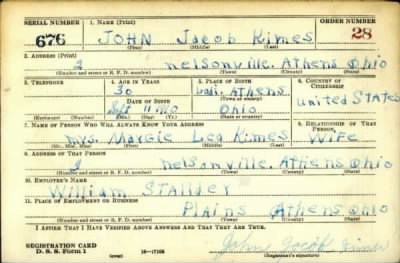 SERIAL NUMBER 1. NAME (Print) ORDER NUMBER
676 JOHN Jacob Kimes 28
(First) (Middle) (Last)
2. ADDRESS (Print)
2 nelsonville. Athens Ohio
(Number and street or R. F. D. number) (Town) (County) (State)
3. TELEPHONE 4. AGE IN YEARS 5. PLACE OF BIRTH 6. COUNTRY OF CITIZENSHIP
30 Athens
DATE OF BIRTH (Town or county) United States
Sept 11 1910 Ohio
(Exchange) (Number) (Mo.) (Day) (Yr.) (State or country)
7. NAME OF PERSON WHO WILL ALWAYS KNOW YOUR ADDRESS 8. RELATIONSHIP OF THAT PERSON
mrs. Margie Lea Kimes Wife
(Mr., Mrs., Miss) (First) (Middle) (Last)
9. ADDRESS OF THAT PERSON
nelsonville. Athens Ohio
(Number and street or R. F. D. number) (Town) (County) (State)
10. EMPLOYER'S NAME
William Stalder
11. PLACE OF EMPLOYMENT OR BUSINESS
Plains Athens Ohio
(Number and street or R. F. D. number) (Town) (County) (State)
I AFFIRM THAT I HAVE VERIFIED ABOVE ANSWERS AND THAT THEY ARE TRUE.
REGISTRATION CARD John Jacob Kimes
D. S. S. Form 1 (over) 16—17105 (Registrant's signature)